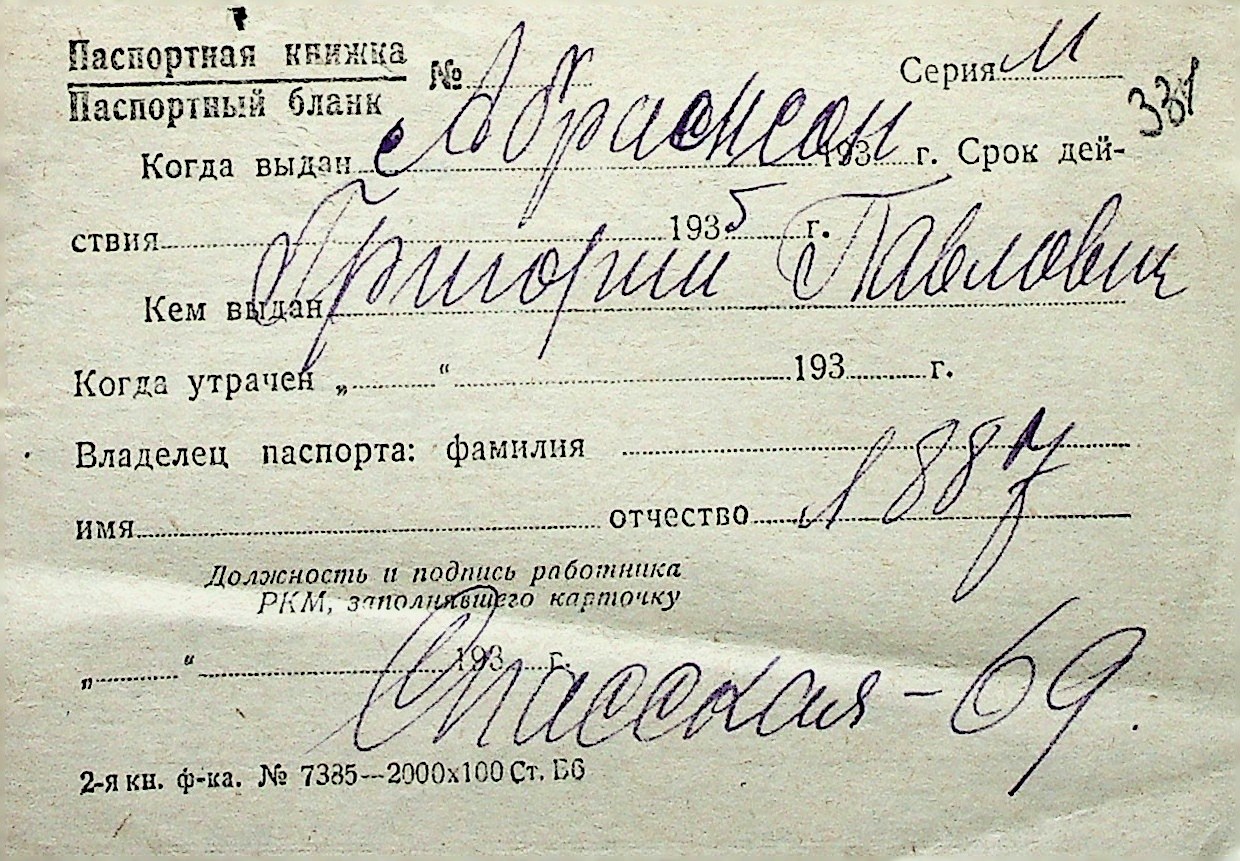 Паспортная книжка
Паспортный бланк
№ Серия М
331
Абрамсон
Когда выдан 193 г. Срок дей-
ствия 1935 г.
Григорий Павлович
Кем выдан
Когда утрачен „ “ 193 г.
Владелец паспорта: фамилия
1887
имя отчество
Должность и подпись работника
РКМ, заполнявшего карточку
„ “ 193 г.
Спасская - 69.
2-я кн. ф-ка. № 7385—2000х100 Ст. Б6